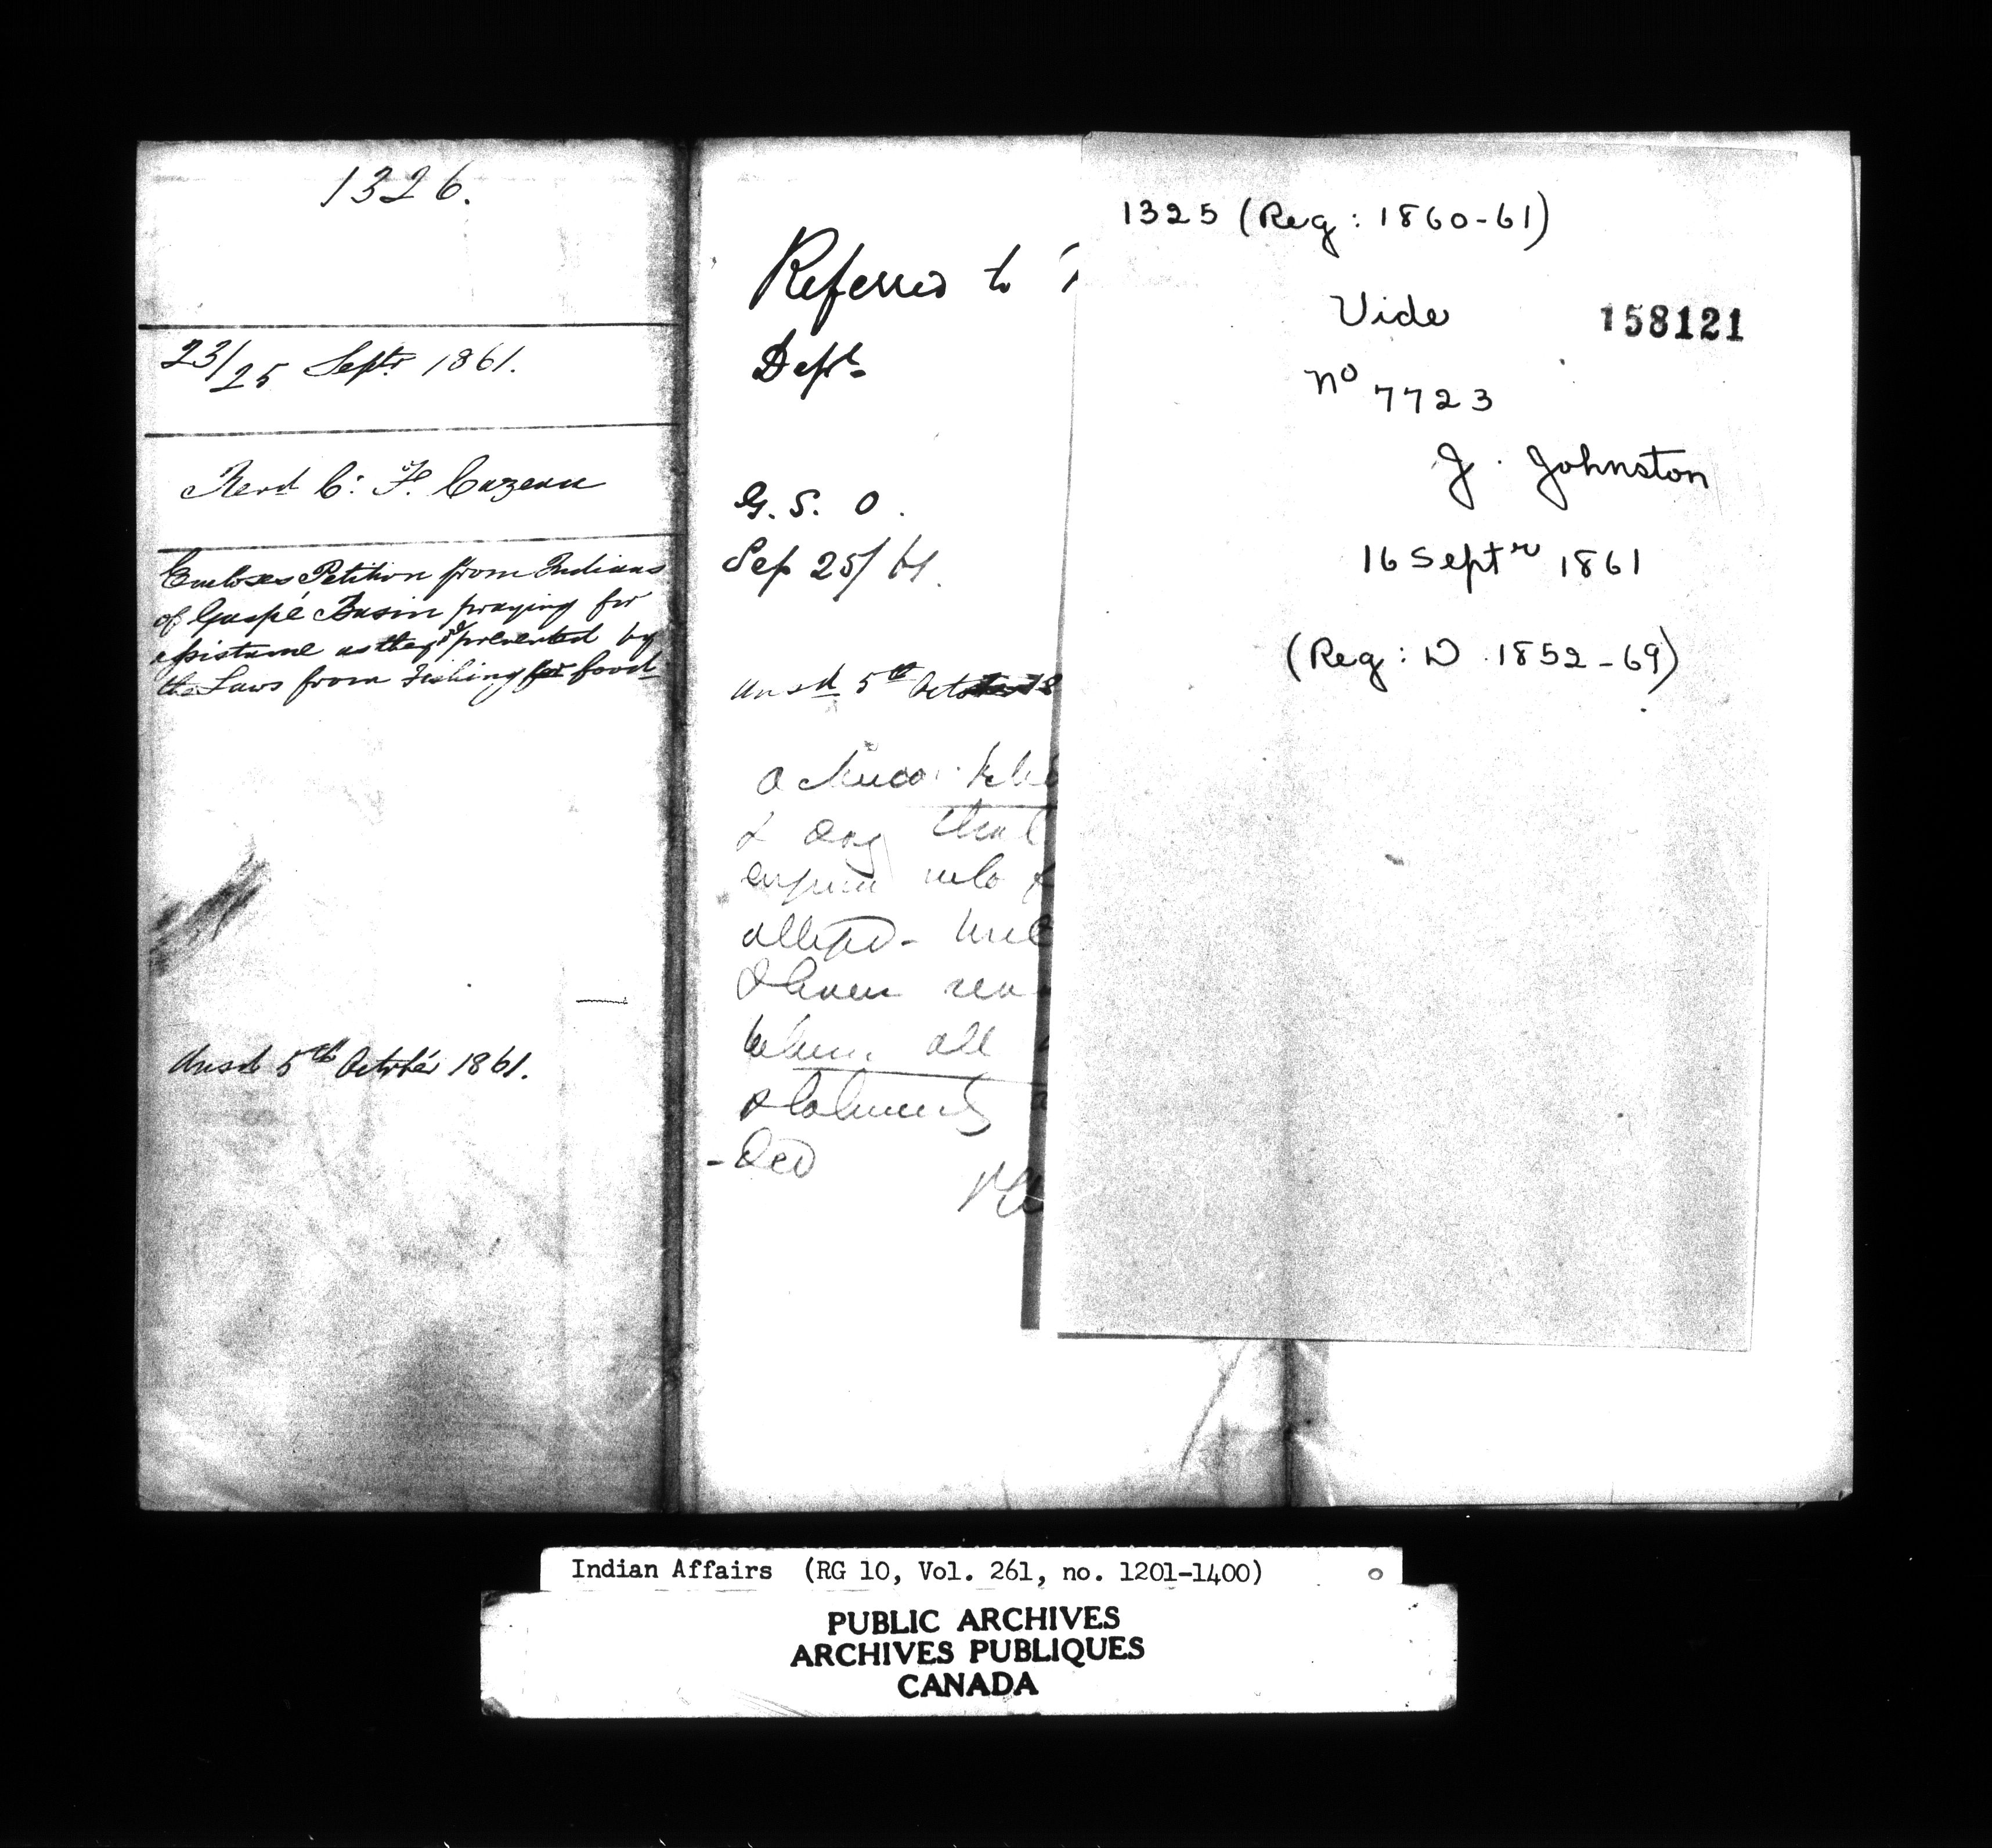 1326.
23/25 Septr 1861.
Revd C: F. Cazeau
Encloses Petition from Indians
of Gaspé Basin praying for
assistance as they are prevented by
the Laws from Fishing for food
Ansd 5th October 1861.
Referred to
Dept
G. S. O.
Sep 25/61.
Ansd 5th Octo
& say that
into
alleged
when all
statements
1325 (Reg: 1860-61)
Vide
158121
No 7723
J. Johnston
16 Septr 1861
(Reg: D. 1852-69)
Indian Affairs (RG 10, Vol. 261, no. 1201-1400)
PUBLIC ARCHIVES
ARCHIVES PUBLIQUES
CANADA